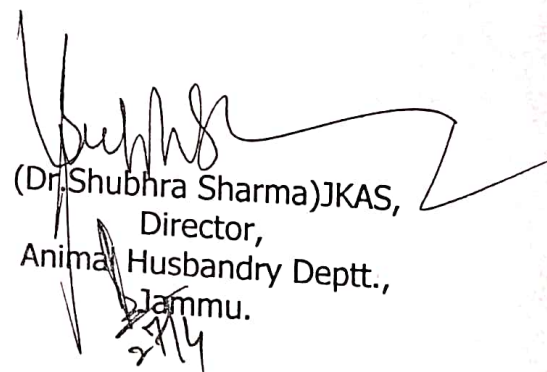 (Dr.Shubhra Sharma)JKAS,
Director,
Animal Husbandry Deptt.,
Jammu.